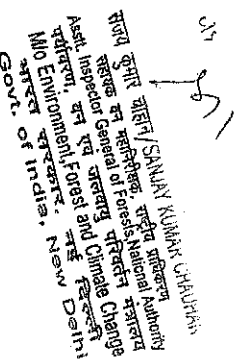 संजय कुमार चौहान / SANJAY KUMAR CHAUHAN
सहायक वन महानिरीक्षक, राष्ट्रीय प्राधिकरण
Asstt. Inspector General of Forests, National Authority
पर्यावरण, वन एवं जलवायु परिवर्तन मंत्रालय
M/o Environment, Forest and Climate Change
भारत सरकार, नई दिल्ली
Govt. of India, New Delhi